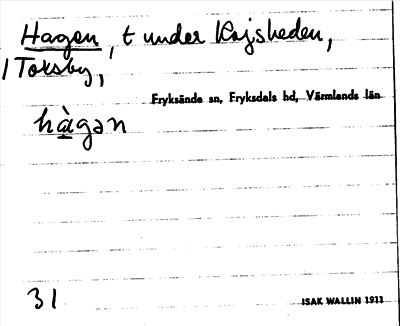 Hagen, t under Kojsheden,
/ Toksby,
Fryksände sn, Fryksdals hd, Värmlands län
hàgan
31
ISAK WALLIN 1911